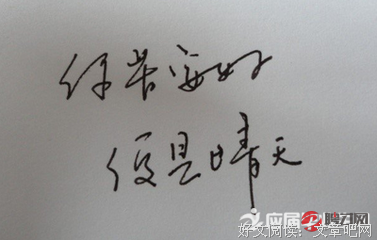 你若安好
便是晴天
应届
聘才网
好文阅读：文章吧网